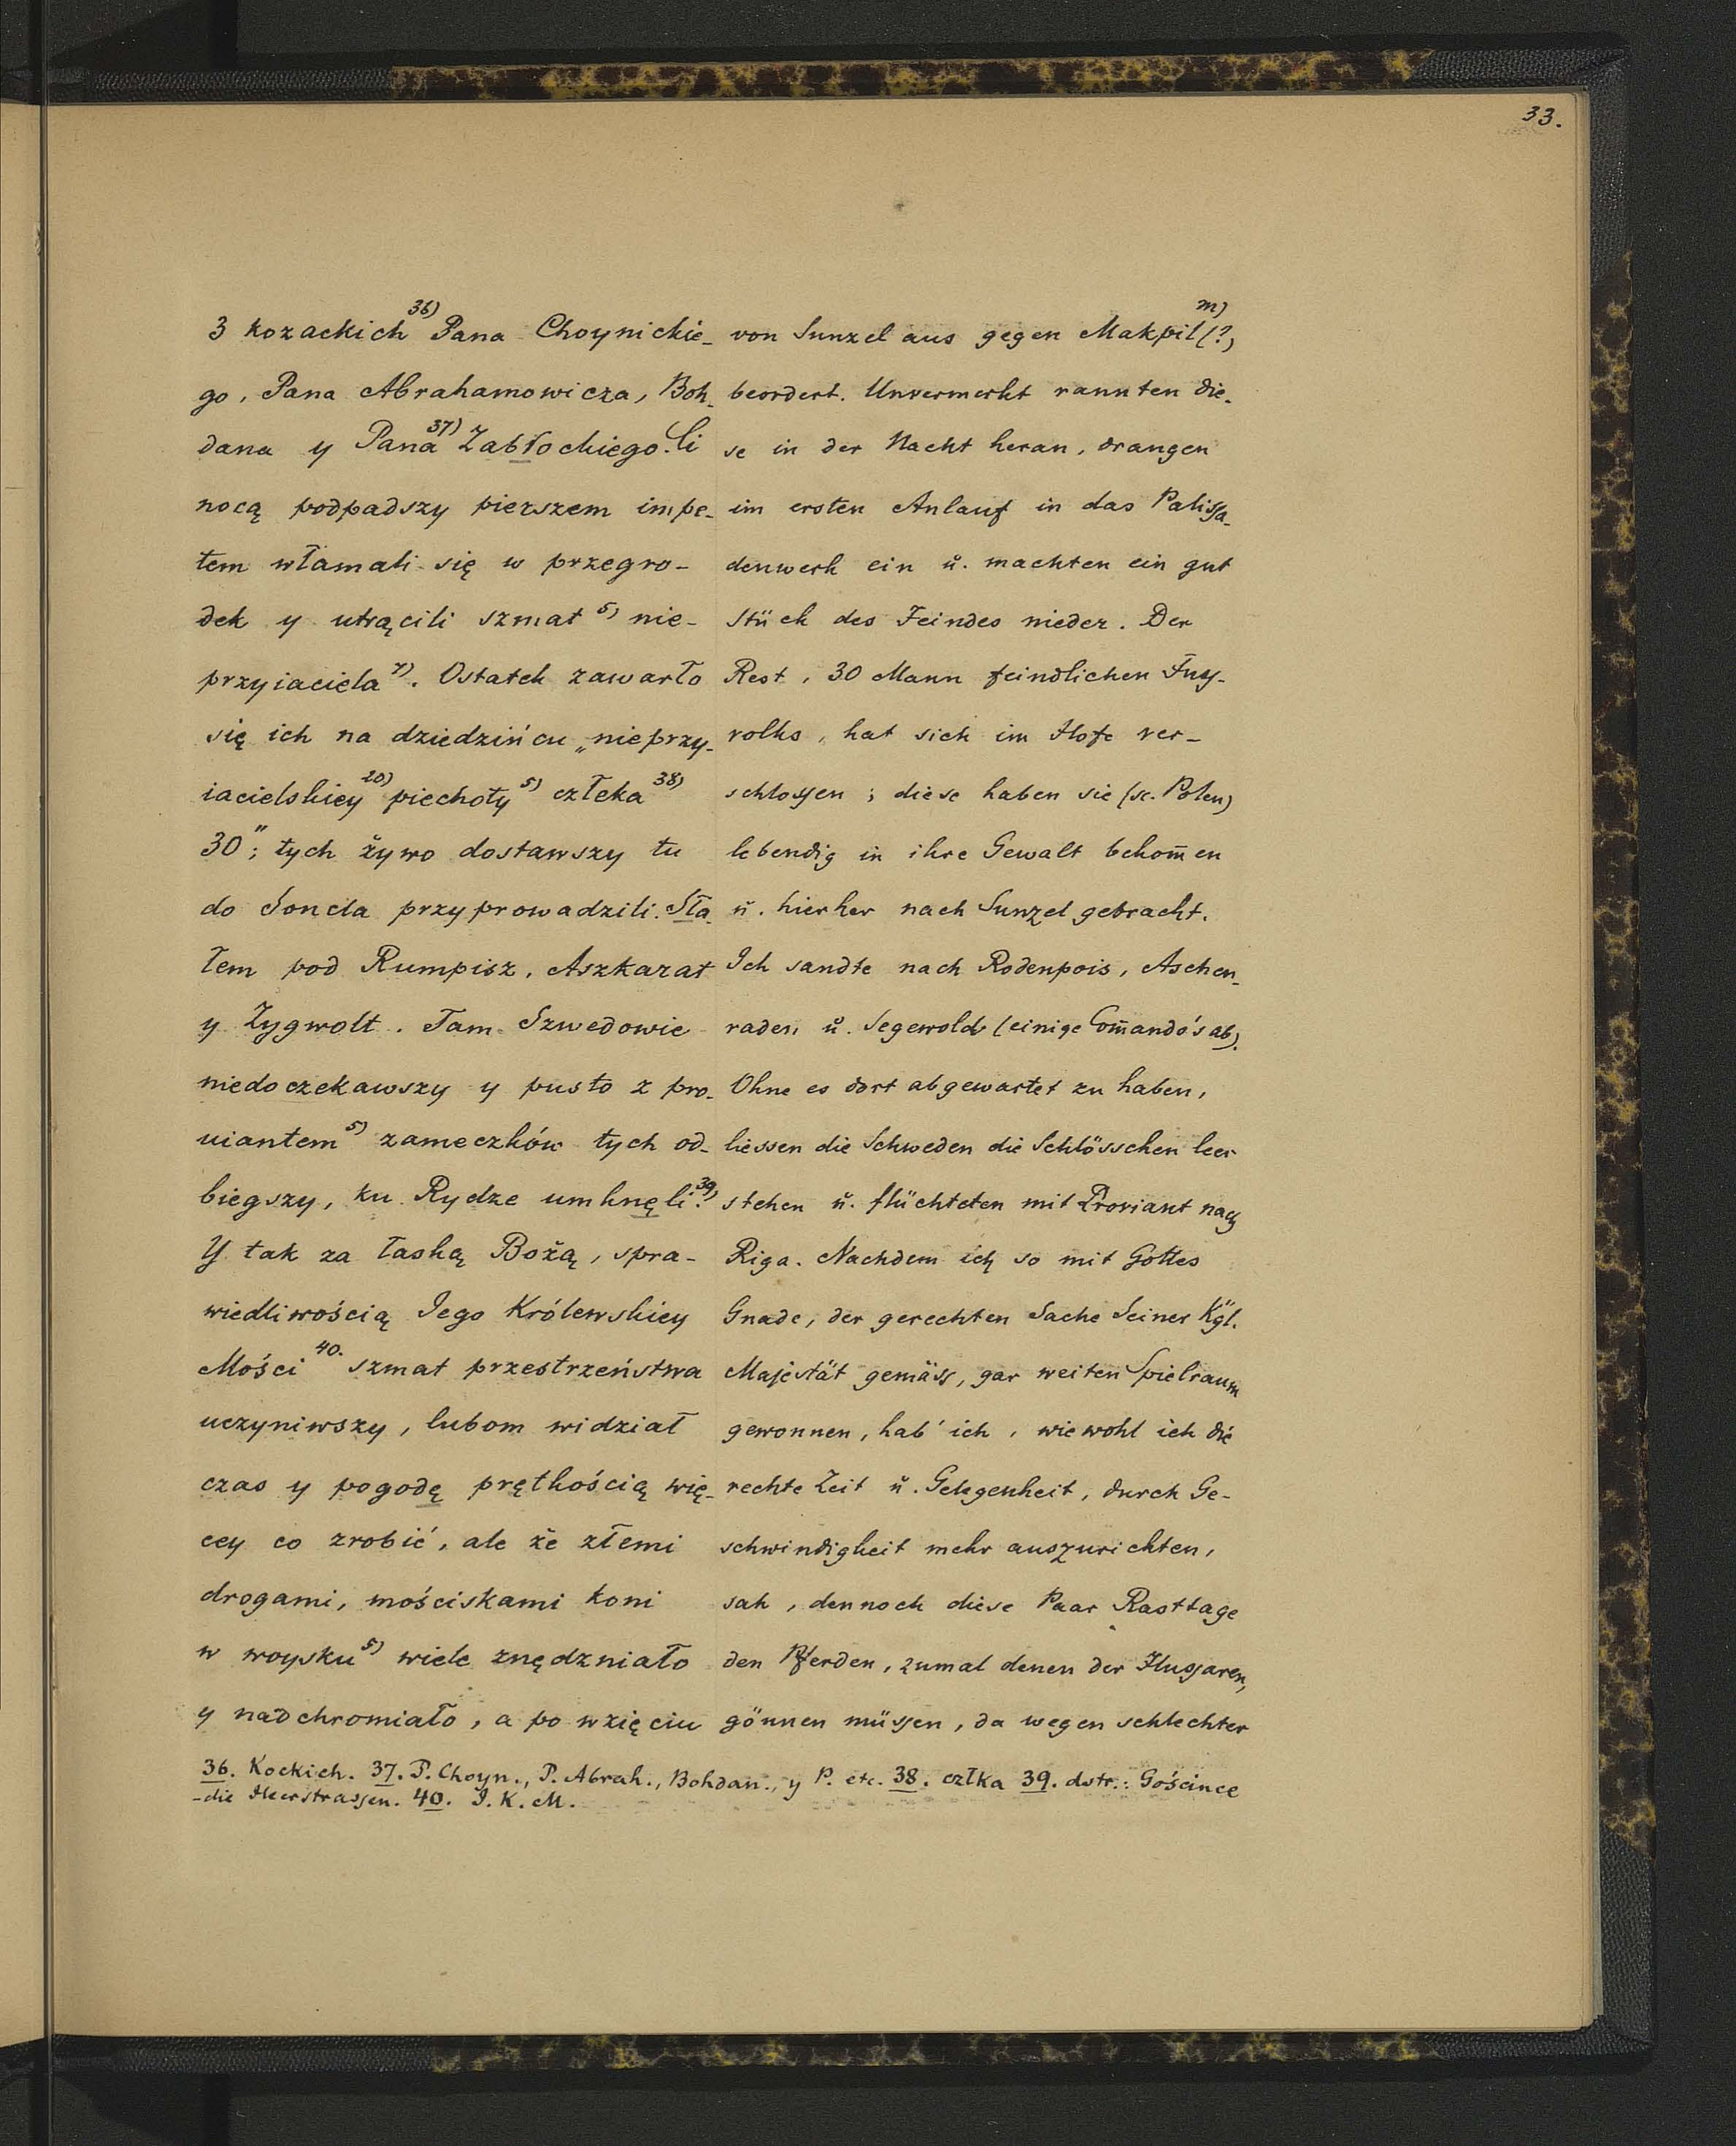 33.
3 kozackich 36) Pana Choynickie-
go, Pana Abrahamowicza, Boh-
dana y Pana 37) Zabłockiego. Ci
nocą podpadszy pierszem impe-
tem włamali się w przegro-
dek y utrącili szmat 5) nie-
przyiaciela 7). Ostatek zawarło
się ich na dziedzińcu „nieprzy-
iacielskiey 20) piechoty 5) człeka 38)
30"; tych żywo dostawszy tu
do Soncla przyprowadzili. Sła-
łem pod Rumpisz, Aszkarat
y Zygwolt. Tam Szwedowie
niedoczekawszy y pusto z pro-
uiantem 5) zameczków tych od-
biegszy, ku Rydze umknęli. 39)
Y tak za łaską Bożą, spra-
wiedliwością Jego Królewskiey
Mości 40. szmat przestrzeństwa
uczyniwszy, lubom widział
czas y pogodę prętkością wię-
cey co zrobić, ale że złemi
drogami, mościskami koni
w woysku 5) wiele znędzniało
y nadchromiało, a po wzięciu
von Sunzel aus gegen Makpil (?) m)
beordert. Unvermerkt rannten die-
se in der Nacht heran, drangen
im ersten Anlauf in das Palissa-
denwerk ein ŭ. machten ein gut
Stück des Feindes nieder. Der
Rest, 30 Mann feindlichen Fuss-
volks, hat sich im Hofe ver-
schlossen; diese haben sie (sc. Polen)
lebendig in ihre Gewalt bekom̅en
ŭ. hierher nach Sunzel gebracht.
Ich sandte nach Rodenpois, Aschen-
raden ŭ. Segewold (einige Com̅ando's ab).
Ohne es dort abgewartet zu haben,
liessen die Schweden die Schlösschen leer
stehen ŭ. flüchteten mit Proviant nach
Riga. Nachdem ich so mit Gottes
Gnade, der gerechten Sache Seiner Kgl.
Majestät gemäss, gar weiten Spielraum
gewonnen, hab' ich, wiewohl ich die
rechte Zeit ŭ. Gelegenheit, durch Ge-
schwindigkeit mehr auszurichten,
sah, dennoch diese Paar Rasttage
den Pferden, zumal denen der Husaren,
gönnen müssen, da wegen schlechter
36. Kockich. 37. P. Choyn., P. Abrah., Bohdan., y P. etc. 38. człka 39. dstr.: Goścince
- die Heerstrassen. 40. J. K. M.